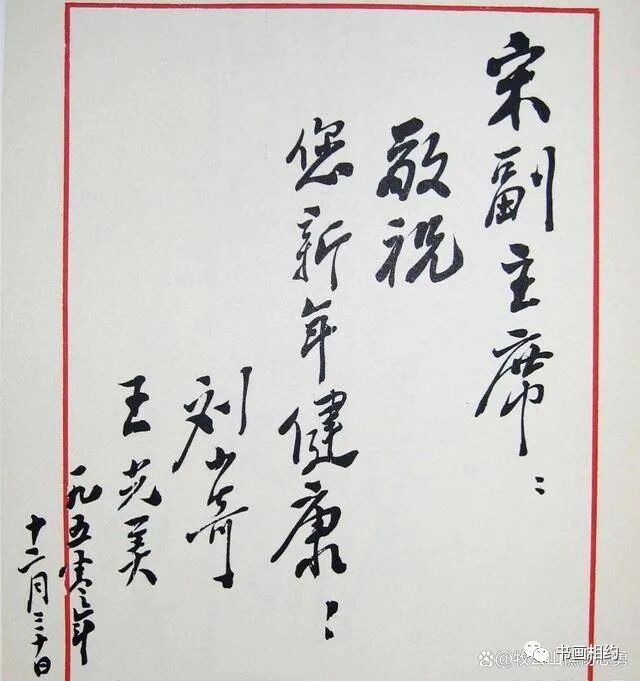 宋副主席：
敬祝
您新年健康：
刘少奇
王光美
一九五年
十二月三十日
书画相约